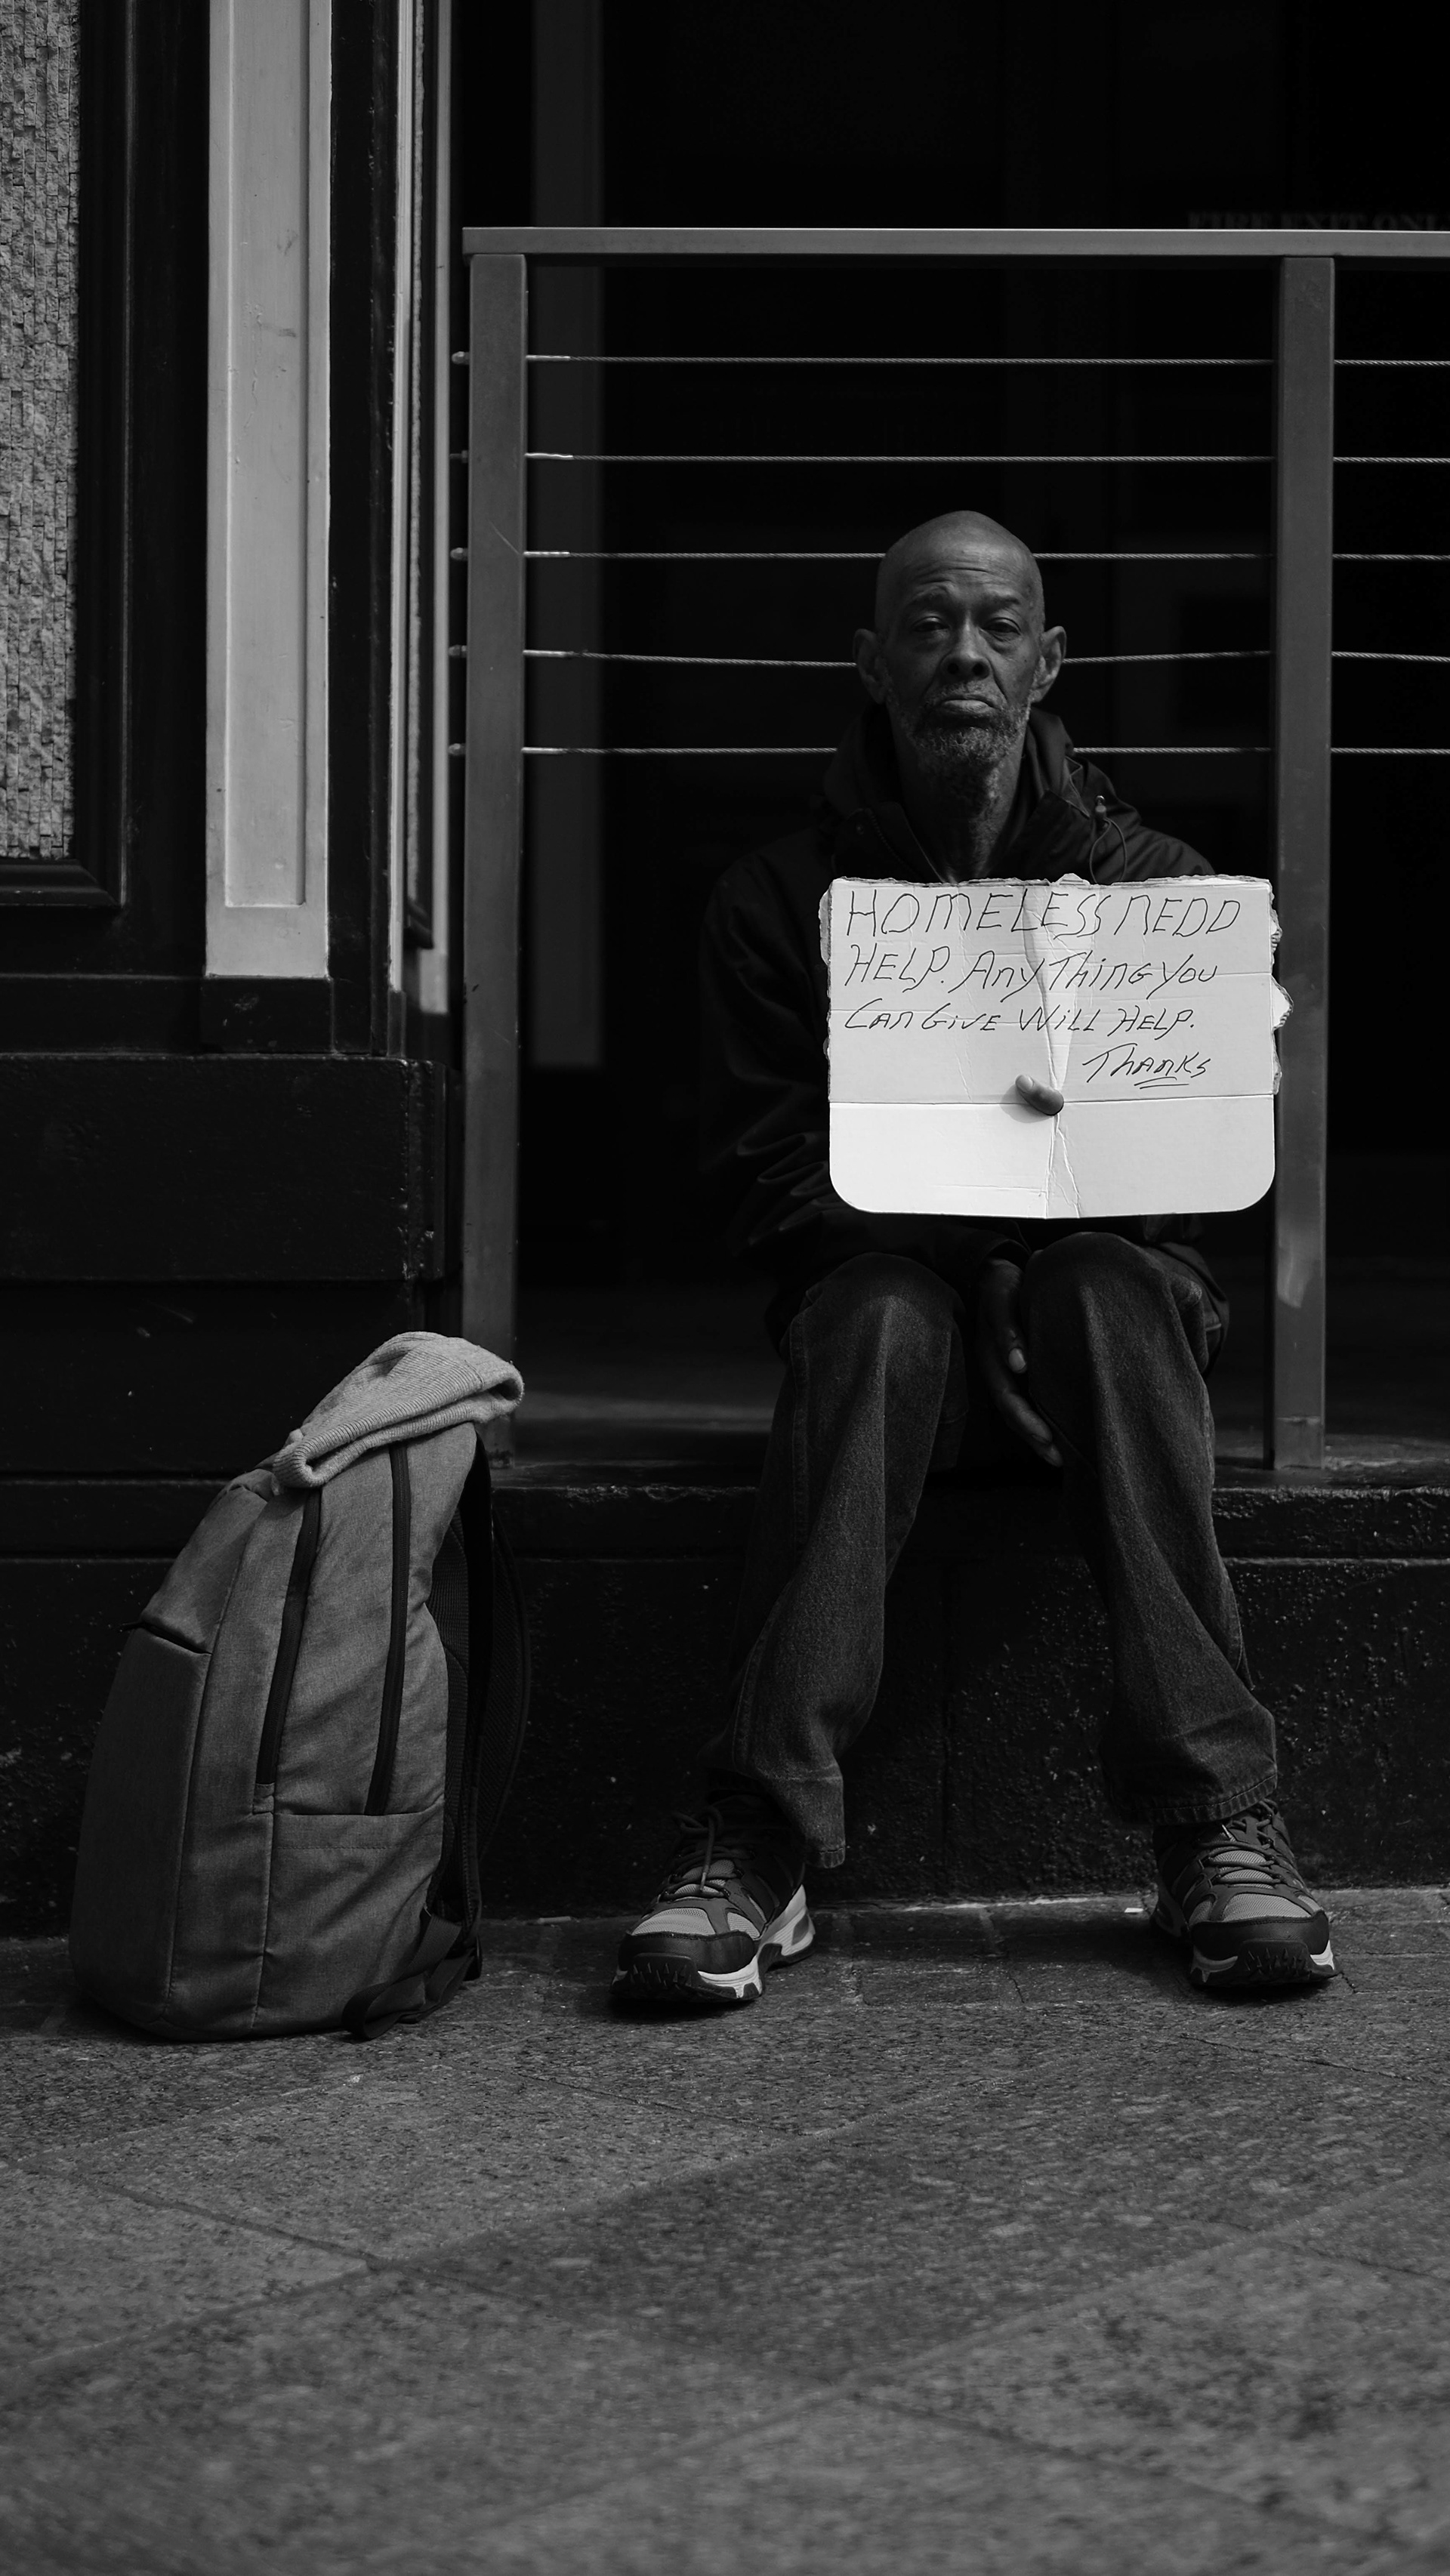 FIRE EXIT ONLY
HOMELESS NEDD
HELP. ANYTHING YOU
CAN GIVE WILL HELP.
THANKS